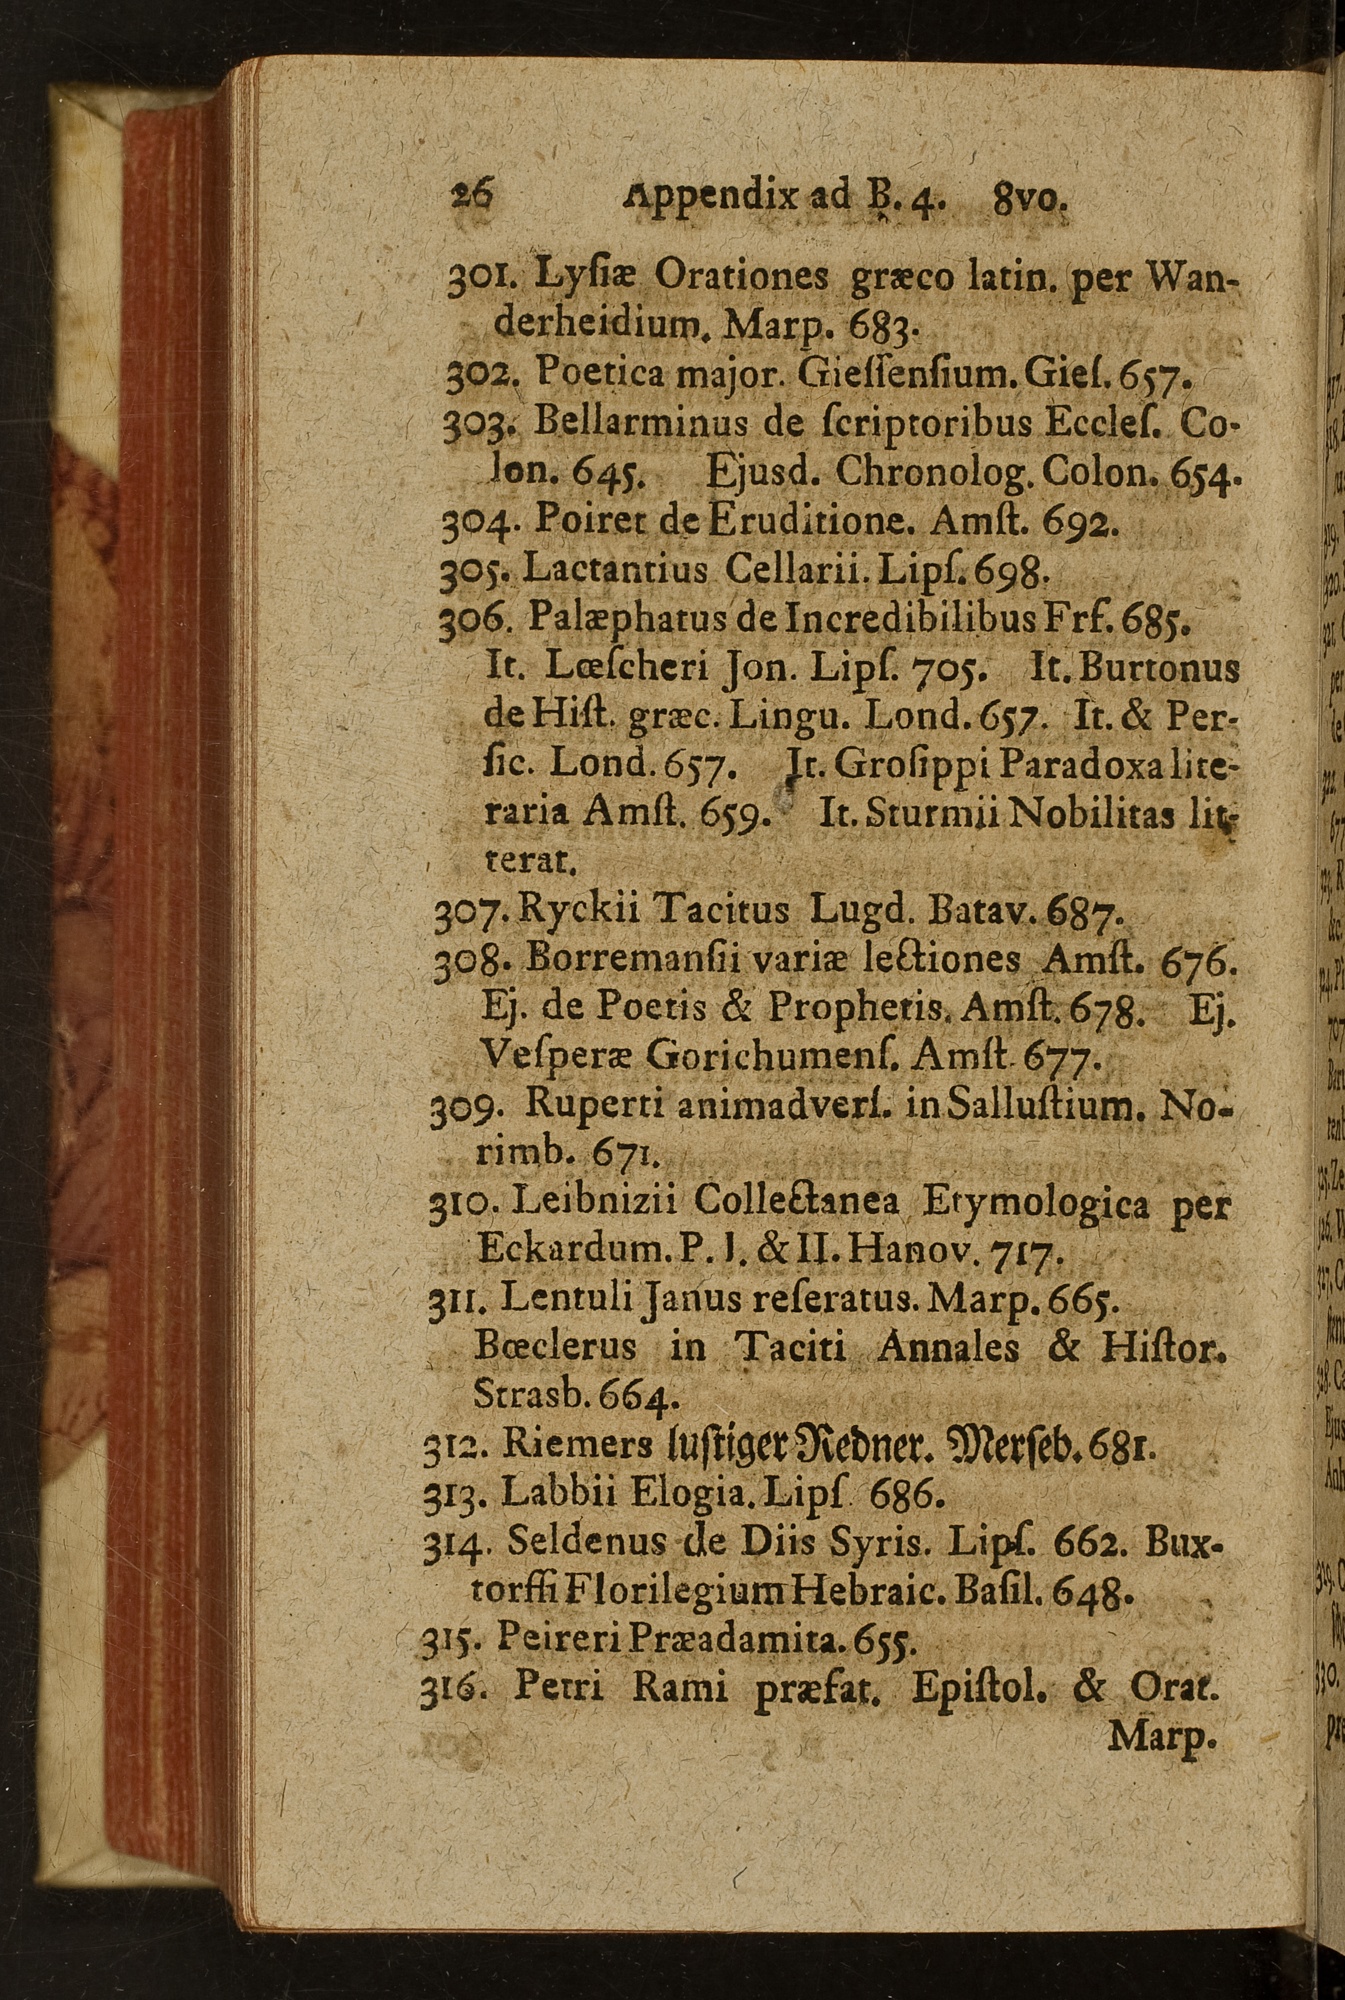 26 Appendix ad B. 4. 8vo.
301. Lyſiæ Orationes græco latin. per Wan-
derheidium. Marp. 683.
302. Poetica major. Gieſſenſium. Gieſ. 657.
303. Bellarminus de ſcriptoribus Eccleſ. Co-
lon. 645. Ejusd. Chronolog. Colon. 654.
304. Poiret de Eruditione. Amſt. 692.
305. Lactantius Cellarii. Lipſ. 698.
306. Palæphatus de Incredibilibus Frf. 685.
It. Lœſcheri Jon. Lipſ. 705. It. Burtonus
de Hiſt. græc. Lingu. Lond. 657. It. & Per-
ſic. Lond. 657. It. Groſippi Paradoxa lite-
raria Amſt. 659. It. Sturmii Nobilitas lit-
terat.
307. Ryckii Tacitus Lugd. Batav. 687.
308. Borremanſii variæ lectiones Amſt. 676.
Ej. de Poetis & Prophetis. Amſt. 678. Ej.
Veſperæ Gorichumenſ. Amſt. 677.
309. Ruperti animadverſ. in Salluſtium. No-
rimb. 671.
310. Leibnizii Collectanea Etymologica per
Eckardum. P. I. & II. Hanov. 717.
311. Lentuli Janus reſeratus. Marp. 665.
Bœclerus in Taciti Annales & Hiſtor.
Strasb. 664.
312. Riemers luſtiger Redner. Merſeb. 681.
313. Labbii Elogia. Lipſ. 686.
314. Seldenus de Diis Syris. Lipſ. 662. Bux-
torffi Florilegium Hebraic. Baſil. 648.
315. Peireri Præadamita. 655.
316. Petri Rami præfat. Epiſtol. & Orat.
Marp.